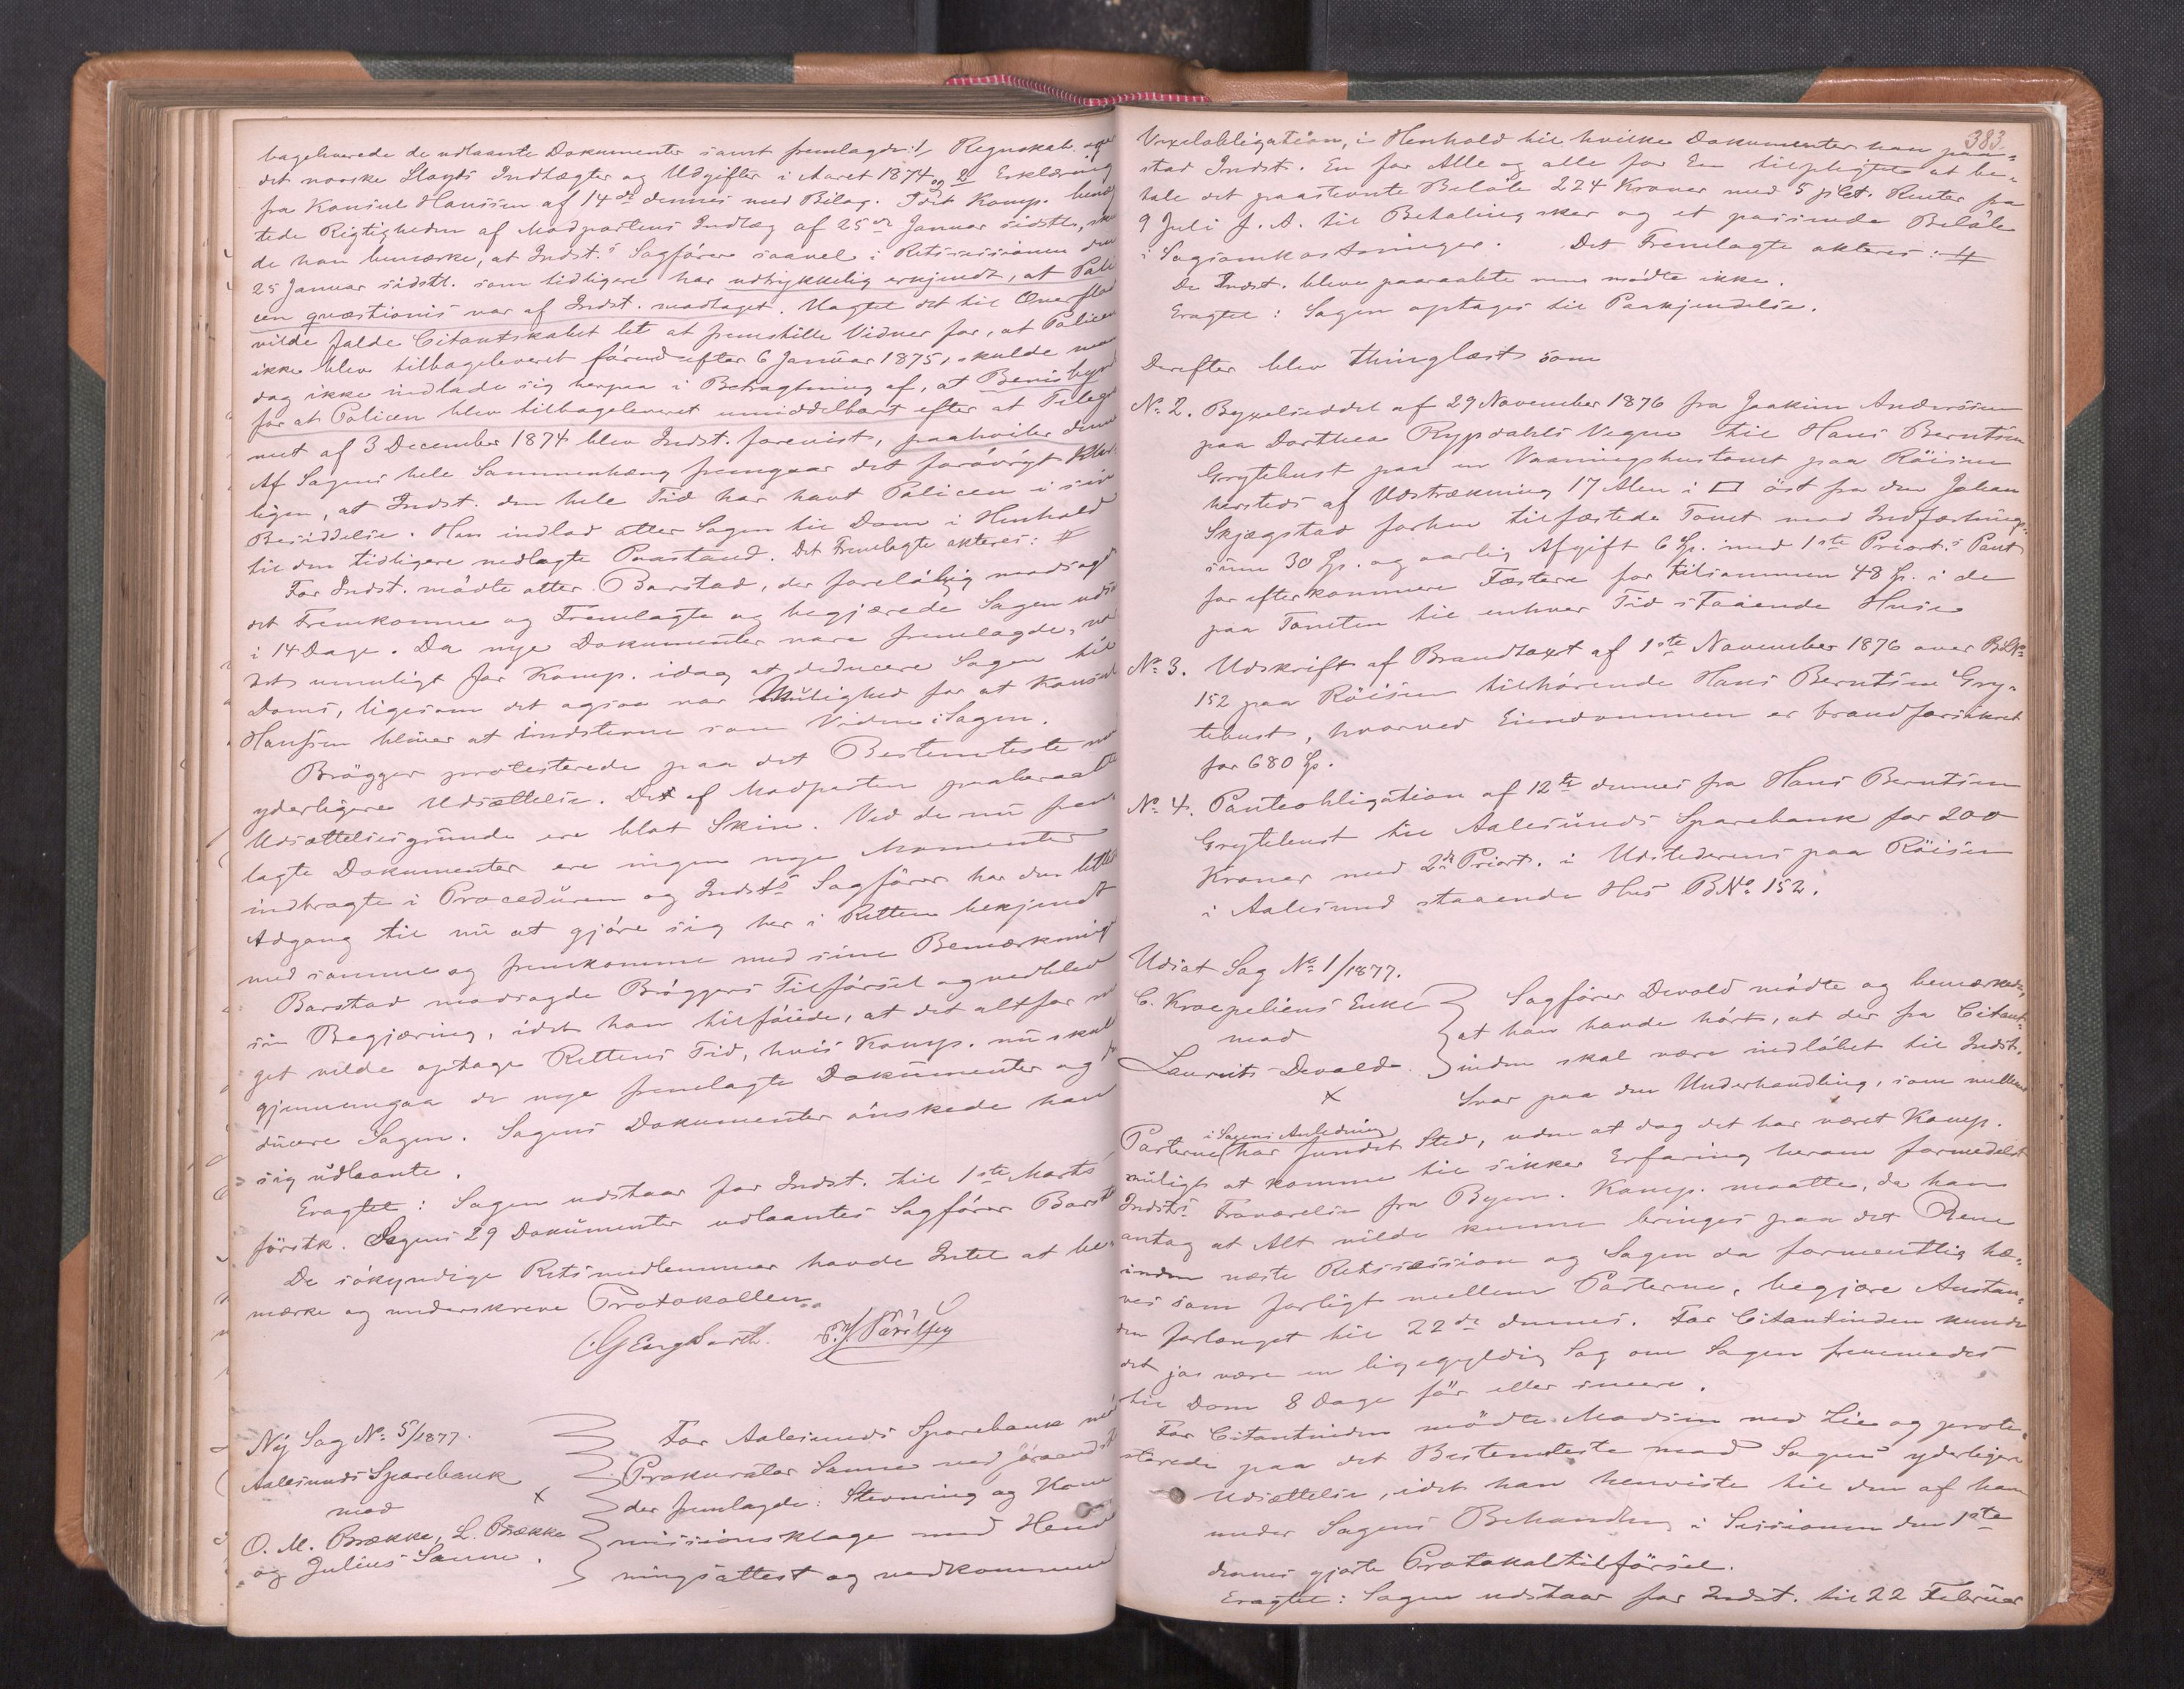 bageleverede de udlaante Dokumenter samt fremlagde: 1, Regnskab over
det norske Lloyds Indtægter og Udgifter i Aaret 1874 og 2 Erklæring
fra Konsul Hanssen af 14de dennes med Bilag. Idet Komp. benæg
tede Rigtigheden af Modpartens Indlæg af 25de Januar sidstl., skul
de han bemærke, at Indst.s Sagfører saavel i Retssessionen den
25 Januar sidstl. som tidligere har udtrykkelig erkjendt, at Poli
cen quæstionis var af Indst. modtaget. Uagtet det til Overflod
vilde falde Citantskabet let at fremstille Vidner for, at Policen
ikke blev tilbageleveret förend efter 6 Januar 1875, skulde man
dog ikke indlade sig herpaa i Betragtning af, at Bevisbyrd
for at Policen blev tilbageleveret umiddelbart efter at Telegra
met af 3 December 1874 blev Indst. forevist, paahviler denne
Af Sagens hele Sammenhæng fremgaar det forövrigt klar
ligen, at Indst. den hele Tid har havt Policen i sin
Besiddelse. Han indlod atter Sagen til Dom i Henhold
til den tidligere nedlagte Paastand. Det Fremlagte akteres: #
For Indst. mödte atter Barstad, der foreløbig modsagde
det Fremkomne og Fremlagte og begjærede Sagen udsat
i 14 Dage. Da nye Dokumenter vare fremlagde, var
det umuligt for Komp. idag at deducere Sagen til
Doms, ligesom det ogsaa var Mulighed for at Konsul
Hanssen bliver at indstevne som Vidne i Sagen.
Brögger protesterede paa det Bestemteste mod
yderligere Udsættelse. De af Modparten paaberaabte
Udsættelsesgrunde ere blot Skin. Ved de nu frem
lagte Dokumenter ere ingen nye Momenter
indbragte i Proceduren og Indsts Sagförer har den lette
Adgang til nu at gjöre sig her i Retten bekjendt
med samme og fremkomme med sine Bemærkninger
Barstad modsagde Bröggers Tilförsel og vedblev
sin Begjæring, idet han tilföiede, at det altfor me
get vilde optage Rettens Tid, hvis Komp. nu skul
gjennemgaa de nye fremlagte Dokumenter og de
ducere Sagen. Sagens Dokumenter önskede han
sig udlaante.
Eragtet: Sagen udstaar for Indst. til 1ste Marts
förstk. Sagens 29 Dokumenter udlaantes Sagförer Barst
De sökyndige Retsmedlemmer havde Intet at be-
mærke og underskreve Protokollen.
Ny Sag No 5/1877.
Aalesunds Sparebank
mod
O. M. Brække, L. Brække
og Julius Sanne.
For Aalesunds Sparebank mö
Prokurator Sanne
der fremlagde: Stevning og Kom
missionsklage med Hen
ningsattest og vedkommende
383.
Vexelobligation, i Henhold til hvilke Dokumenter han paa-
stod Indst. En for Alle og alle for En tilpligtet at be-
tale det paastevnte Belöb 224 Kroner med 5 pCt. Renter fra
9 Juli f. A. til Betaling sker og et passende Belöb
i Sagsomkostninger. Det Fremlagte akteres: #
De Indst. bleve paaraabte men mödte ikke.
Eragtet: Sagen optages til Paakjendelse.
Derefter blev thinglæst som
No 2. Bygselseddel af 29 November 1876 fra Joakim Anderssen
paa Dorthea Rypdahls Vegne til Hans Berntsen
Grytebust paa en Vaaningshustomt paa Röisen
hersteds af Udstrækning 17 Alen i □ öst fra den Johan
Skjægstad forhen tilfæstede Tomt mod Indfæstnings-
sum 30 Sp. og aarlig Afgift 6 Sp. med 1ste Priort.s Pant
for efterkommere Fæstere for tilsammen 48 Sp. i de
paa Tomten til enhver Tid staaende Huse
No 3. Udskrift af Brandtaxt af 1ste November 1876 over B.No
152 paa Röisen tilhörende Hans Berntsen Gry-
tebust, hvorved Eiendommen er brandforsikret
for 680 Sp.
No 4. Panteobligation af 12te dennes fra Hans Berntsen
Grytebust til Aalesunds Sparebank for 200
Kroner med 2den Priort. i Udstederens paa Röisen
i Aalesund staaende Hus BNo 152.
Udsat Sag No 1/1877.
C. Kroepeliens Enke
mod
Laurits Devold.
Sagförer Devold mödte og bemærkede,
at han havde hört, at der fra Citant-
inden skal være indlöbet til Indst.
Svar paa den Underhandling, som mellem
Parterne i Sagens Anledning har fundet Sted, uden at dog det har været Komp.
muligt at komme til sikker Erfaring herom formedelst
Indsts Fraværelse fra Byen. Komp. maatte, da han
antog at Alt vilde kunne bringes paa det Rene
inden næste Retssession og Sagen da formentlig hæ-
ves som forligt mellem Parterne, begjære Anstan-
den forlænget til 22de dennes. For Citantinden kunde
det jo være en ligegyldig Sag om Sagen fremmedes
til Dom 8 Dage för eller senere.
For Citantinden mödte Madsen ved Lie og prote-
sterede paa det Bestemteste mod Sagens yderligere
Udsættelse, idet han henviste til den af ham
under Sagens Behandling i Sessionen den 1ste
dennes gjorte Protokoltilförsel.
Eragtet: Sagen udstaar for Indst. til 22 Februar